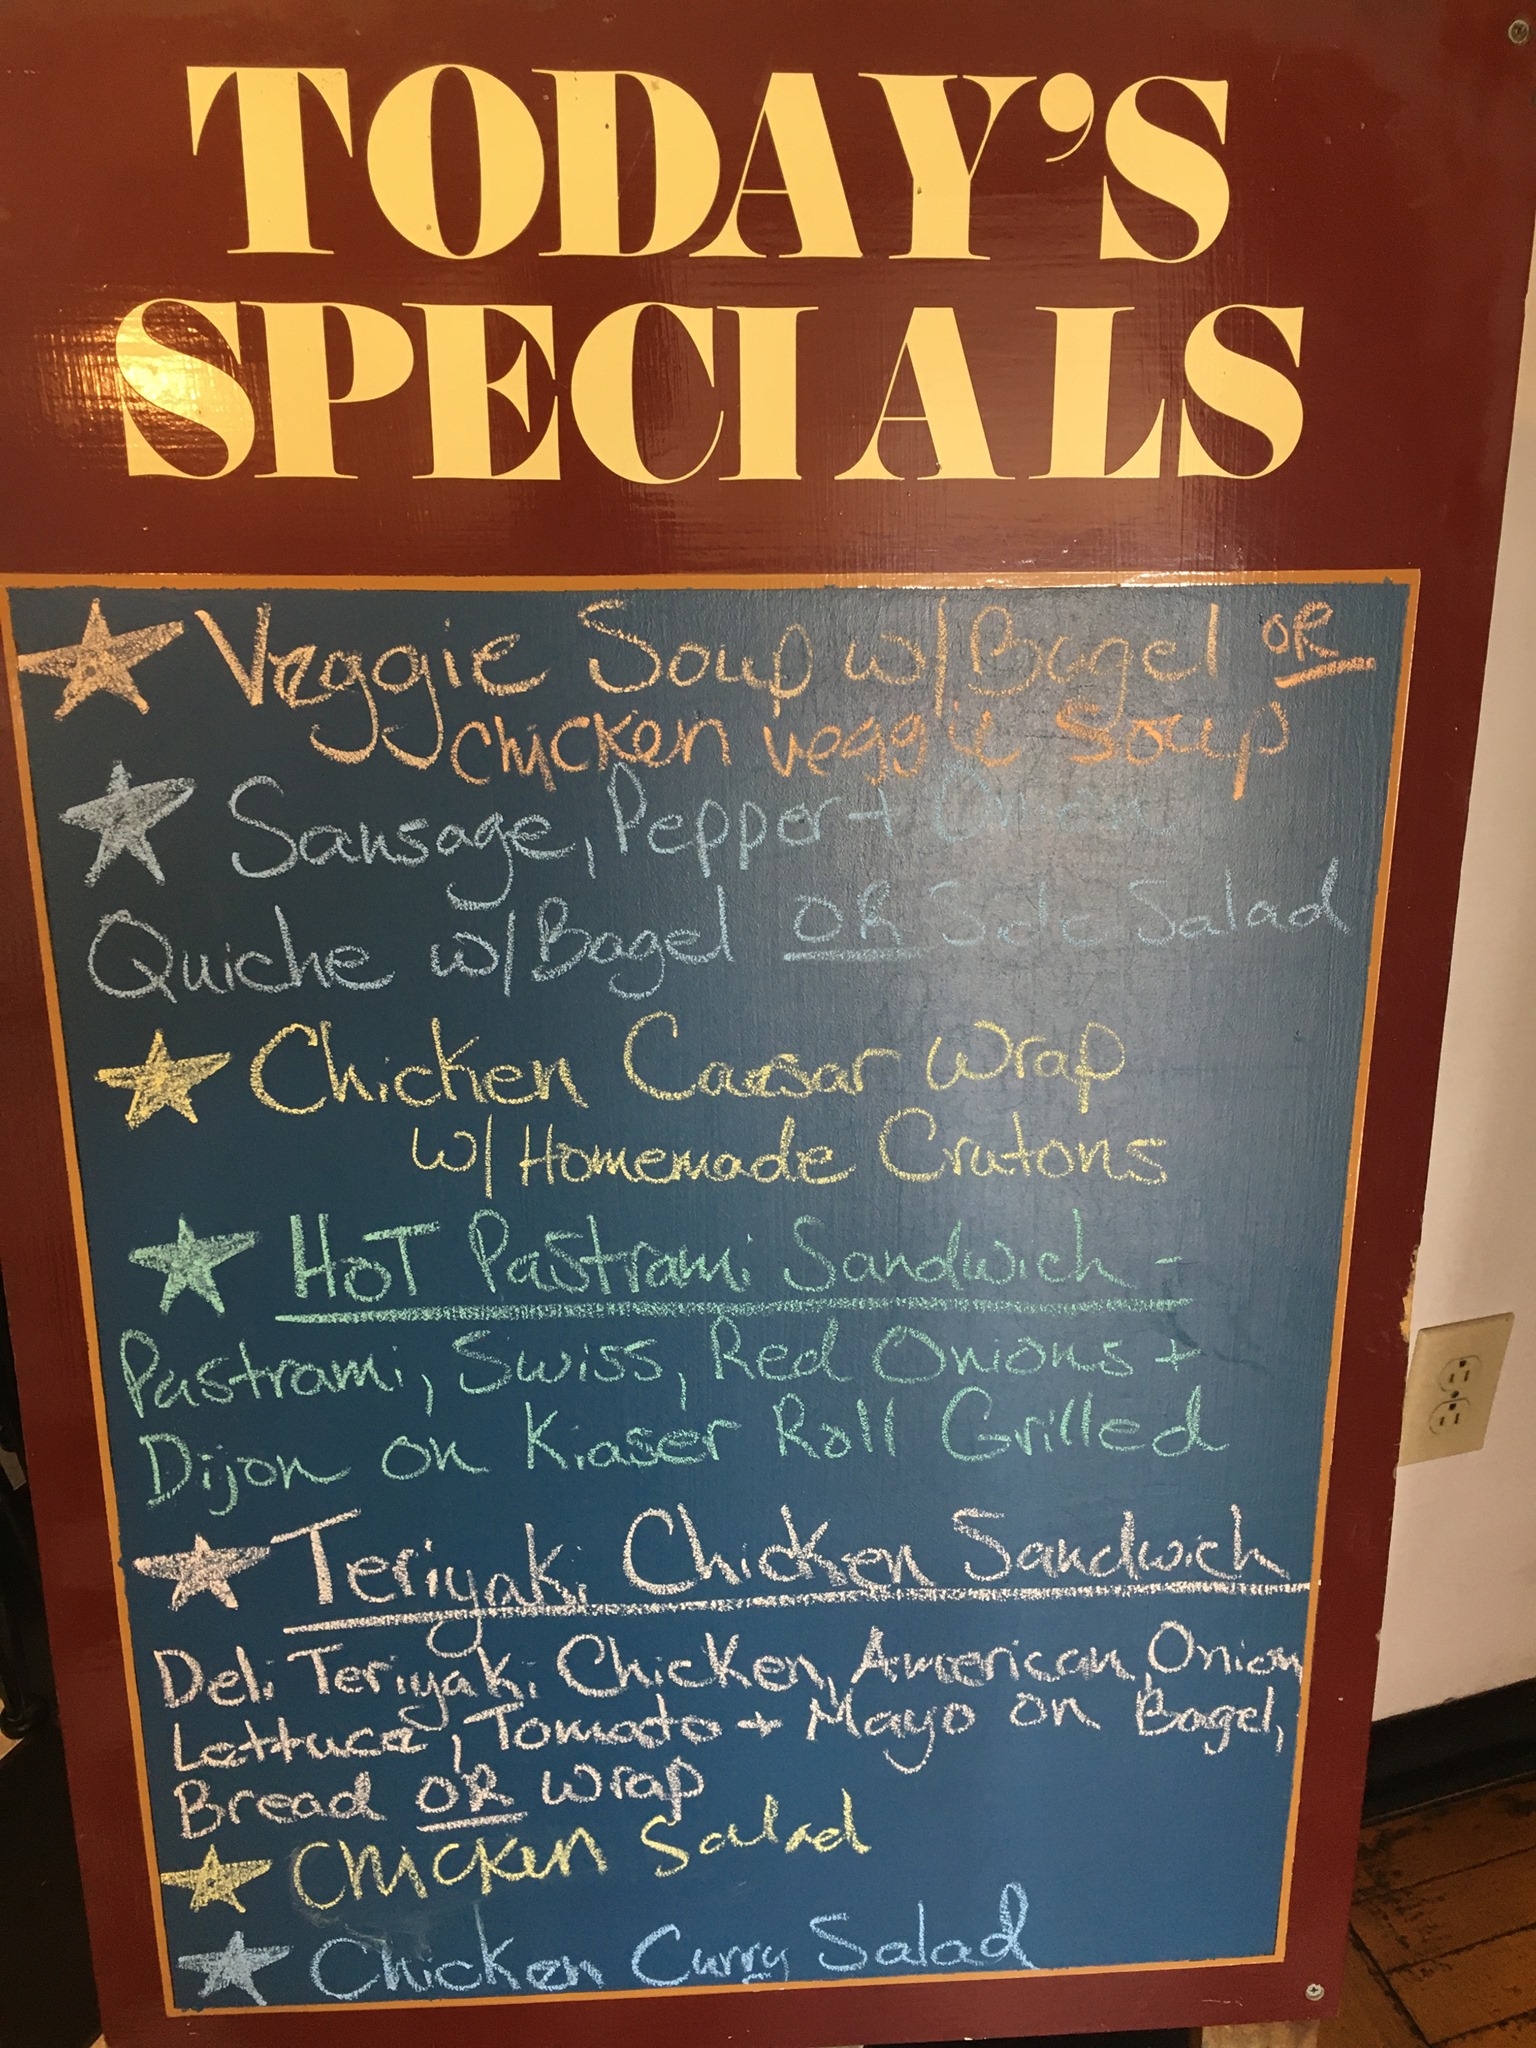 TODAY'S
SPECIALS
Veggie Soup w/Bagel OR
chicken veggie soup
Sausage, Pepper + Onion
Quiche w/Bagel OR Side Salad
Chicken Caesar Wrap
w/Homemade Crutons
HOT Pastrami Sandwich -
Pastrami, Swiss, Red Onions +
Dijon on Kiaser Roll Grilled
Teriyaki Chicken Sandwich
Deli Teriyaki Chicken, American, Onion
Lettuce, Tomato + Mayo on Bagel,
Bread OR Wrap
Chicken Salad
Chicken Curry Salad